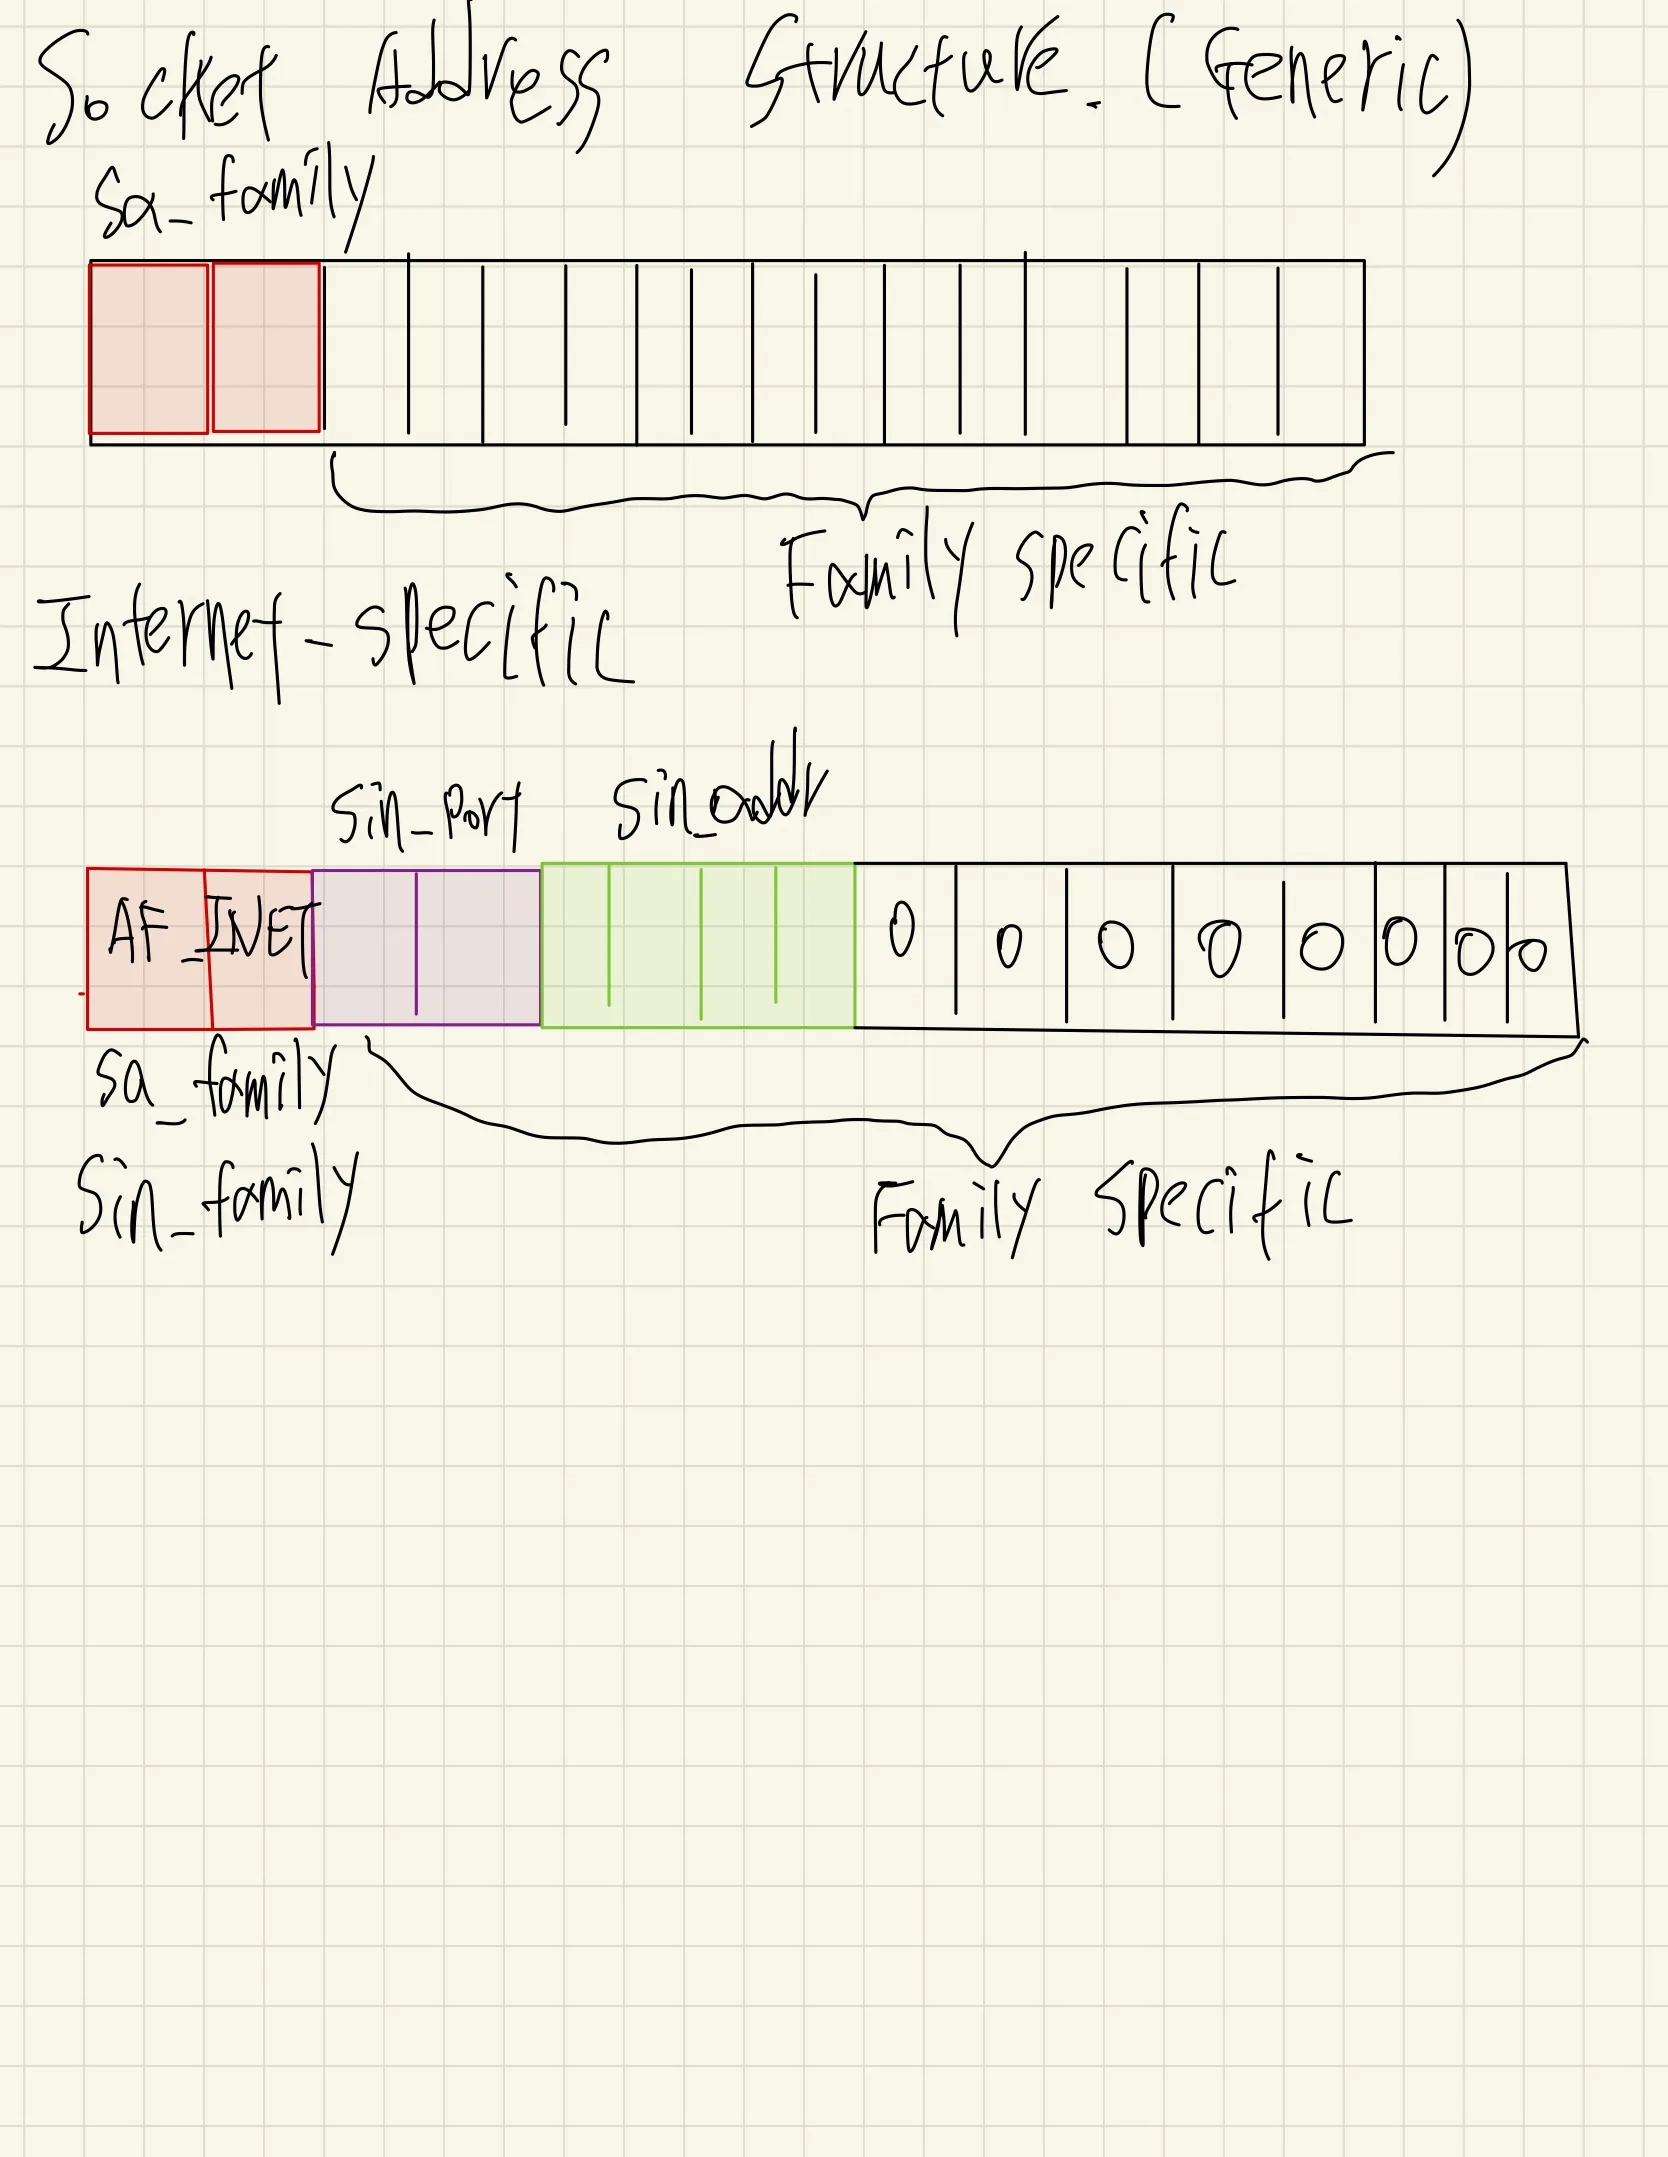 Socket Address Structure. (Generic)
sa_family
Family specific
Internet-specific
sin_port sin_addr
AF_INET 0 0 0 0 0 0 0 0
sa_family
Sin_family
Family specific